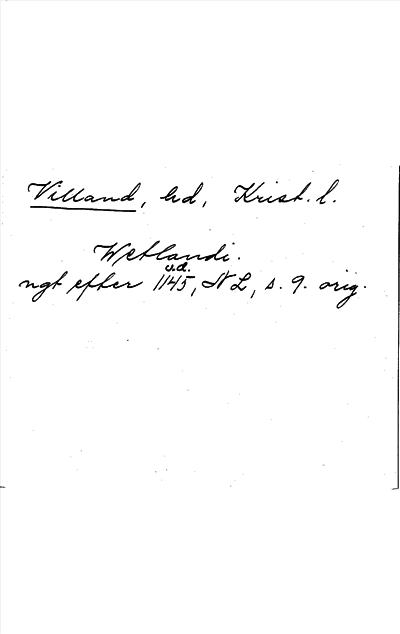 Villand, hd, Krist. l.
Wetlandi.
o.d.
ngt efter 1145, N L, s. 9. orig.